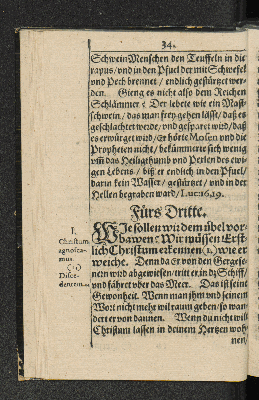 34.
Schwein Menschen den Teuffeln in die
rapus/und in den Pfuel der mit Schwefel
und Pech brennet/ endlich gestürtzet wer-
den. Gieng es nicht also dem Reichen
Schlämmer? Der lebete wie ein Mast-
schwein/ das man frey gehen lässt/ daß es
geschlachtet werde/ und gesparet wird/ daß
es erwürget werd/ Er hörte Mosen und die
Propheten nicht/ bekümmerte sich wenig
umb das Heiligthumb und Perlen des ewi-
gen Lebens/ biß er endlich in den Pfuel/
darin kein Wasser/ gestürtzet/ und in der
Hellen begraben ward/ Luc: 16.19.
Fürs Dritte.
WIe sollen wir dem übel vor-
bawen? Wir müssen Erst-
lich Christum erkennen (1.) wie er
weiche. Denn da Er von den Gergese-
nern wird abgewiesen/ tritt er in dz Schiff/
und fähret uber das Meer. Das ist seine
Gewonheit. Wenn man jhm und seinem
Wort nicht mehr wil raum geben/ so wan-
dert er von dannen. Wenn du nicht wilt
Christum lassen in deinem Hertzen woh-
nen/
I.
Christum
agnosca-
mus
(1)
Disce-
dentem.